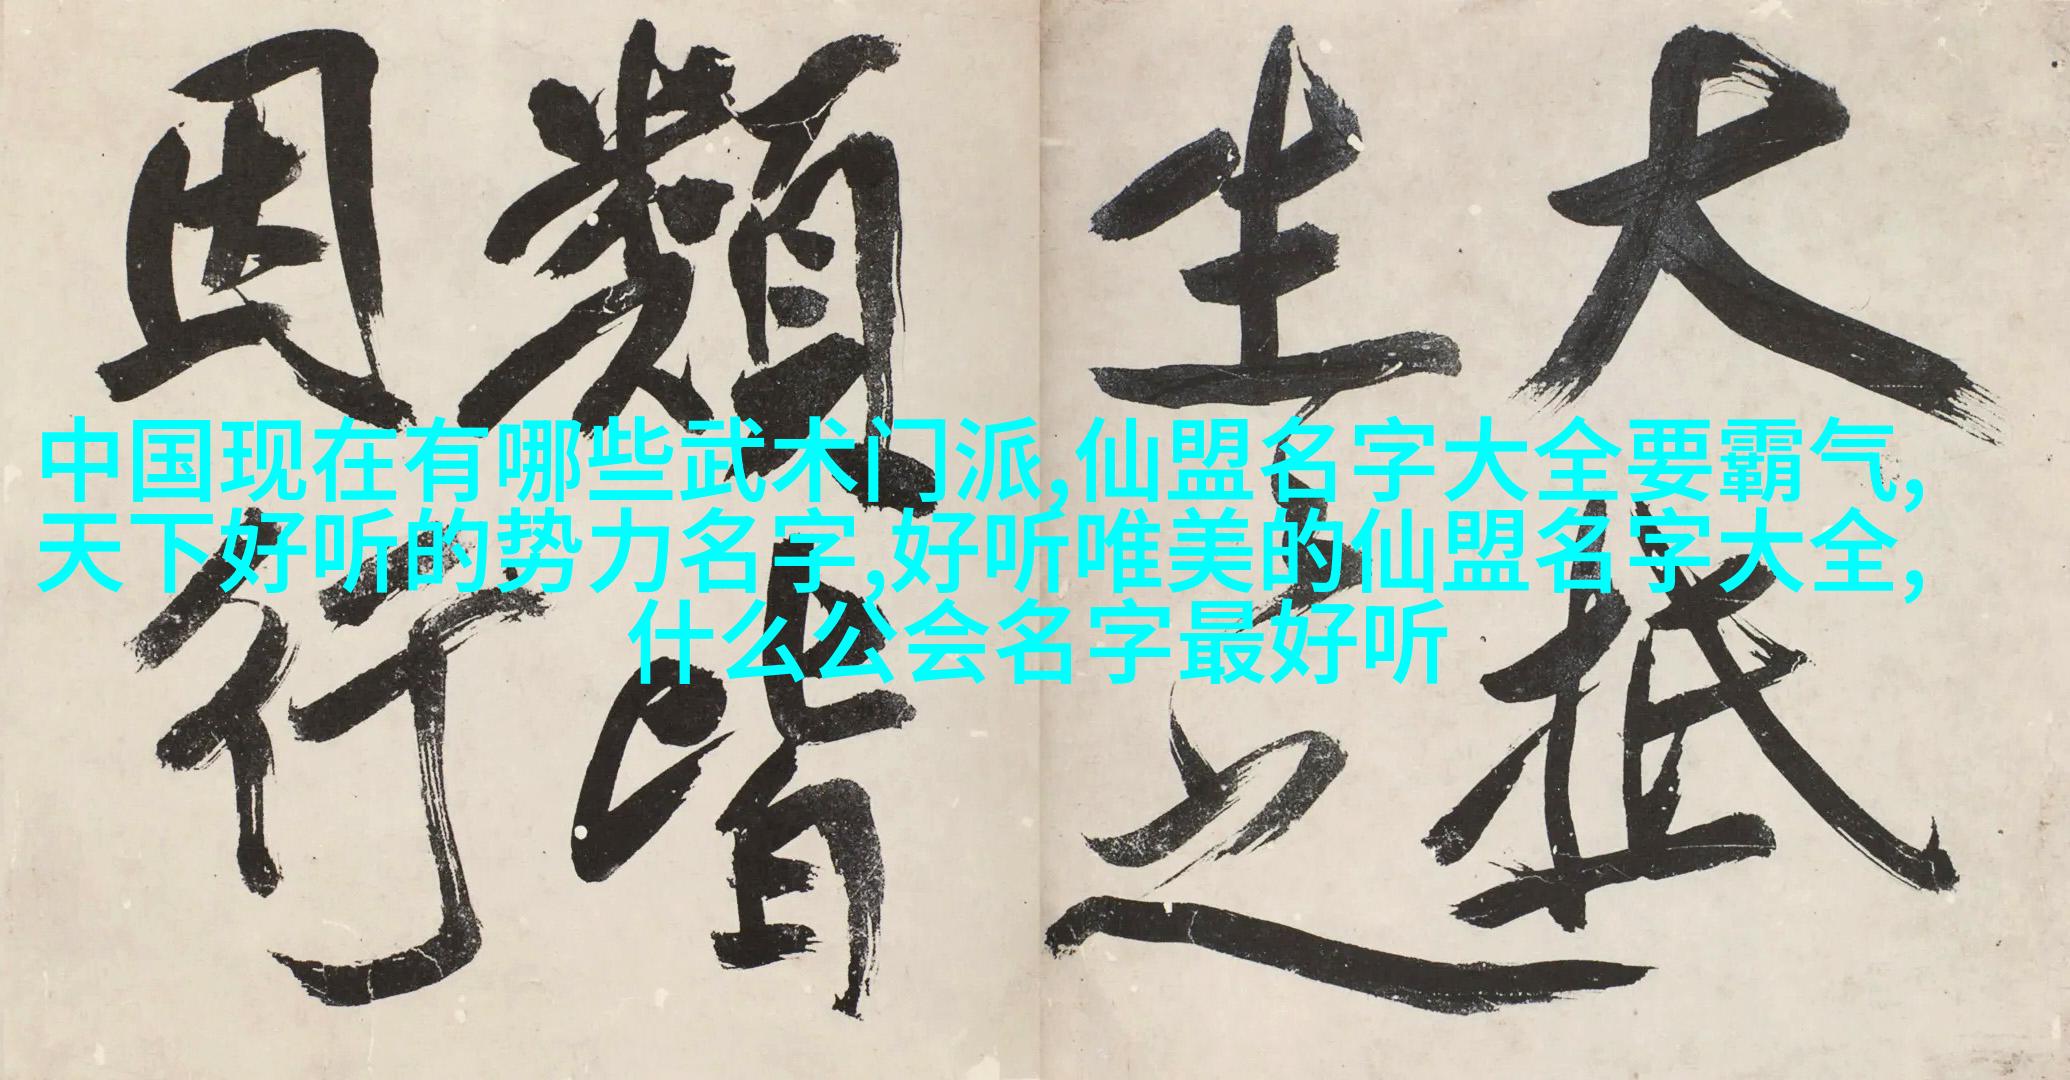 大抵
生之
類皆
因行
中国现在有哪些武术门派,仙盟名字大全要霸气,
天下好听的势力名字,好听唯美的仙盟名字大全,
什么公会名字最好听